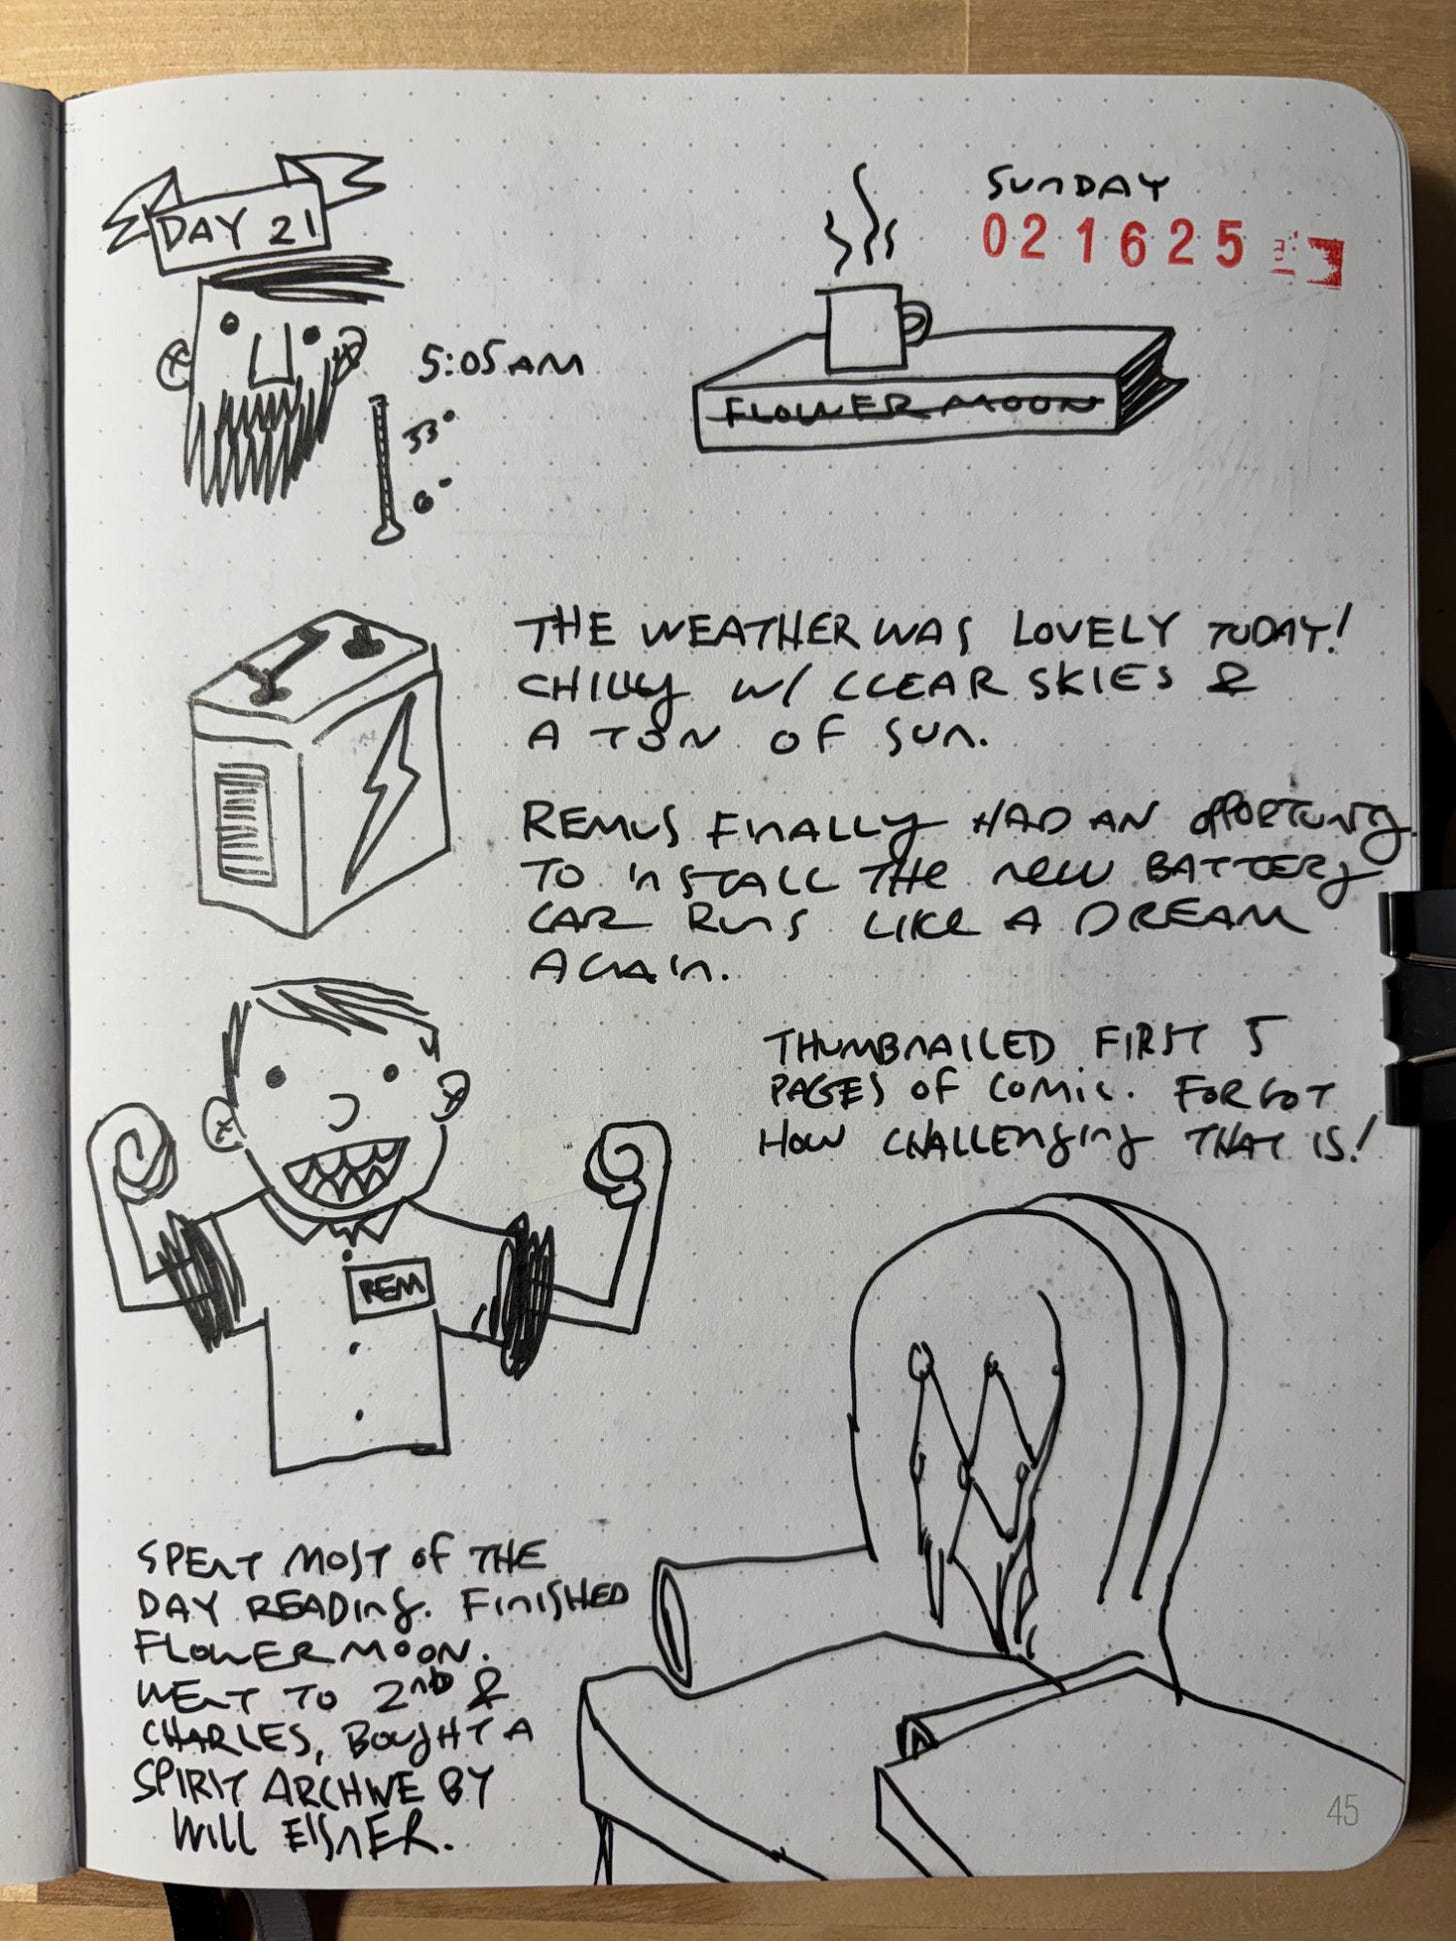 DAY 21
SUNDAY
021625
5:05AM
33°
6°
FLOWER MOON
THE WEATHER WAS LOVELY TODAY!
CHILLY W/ CLEAR SKIES &
A TON OF SUN.
REMUS FINALLY HAD AN OPPORTUNITY
TO INSTALL THE NEW BATTERY
CAR RUNS LIKE A DREAM
AGAIN.
THUMBNAILED FIRST 5
PAGES OF COMIC. FORGOT
HOW CHALLENGING THAT IS!
REM
SPENT MOST OF THE
DAY READING. FINISHED
FLOWER MOON.
WENT TO 2ND &
CHARLES, BOUGHT A
SPIRIT ARCHIVE BY
WILL EISNER.
45